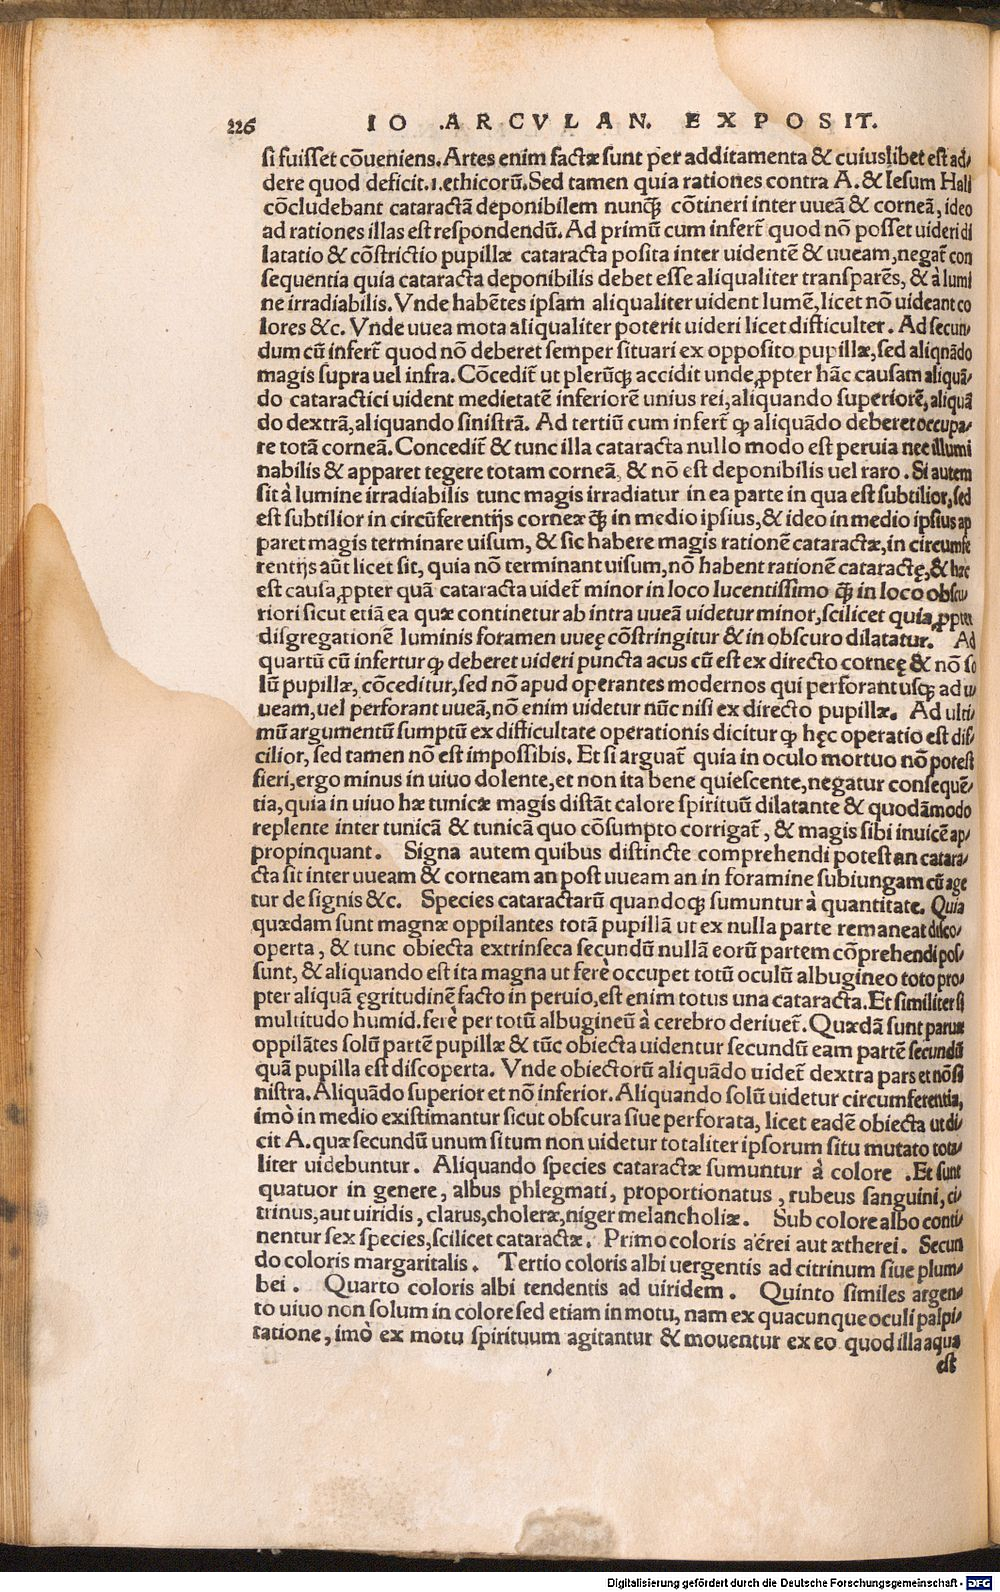 226 IO .ARCVLAN. EXPOSIT.
si fuisset cōueniens. Artes enim factæ sunt per additamenta & cuiuslibet est ad/
dere quod deficit.1.ethicorū. Sed tamen quia rationes contra A. & Iesum Hali
cōcludebant cataractā deponibilem nunq̄ȝ cōtineri inter uueā & corneā, ideo
ad rationes illas est respondendū. Ad primū cum infert̄ quod nō posset uideri di
latatio & cōstrictio pupillæ cataracta posita inter uidentē & uueam, negat̄ con
sequentia quia cataracta deponibilis debet esse aliqualiter transparēs, & à lumi
ne irradiabilis. Vnde habētes ipsam aliqualiter uident lumē, licet nō uideant co
lores &c. Vnde uuea mota aliqualiter poterit uideri licet difficulter. Ad secun/
dum cū infert̄ quod nō deberet semper situari ex opposito pupillæ, sed aliqnādo
magis supra uel infra. Cōcedit̄ ut plerūqȝ accidit unde ꝓpter hāc causam aliquā/
do cataractici uident medietatē inferiorē unius rei, aliquando superiorē, aliquā
do dextrā, aliquando sinistrā. Ad tertiū cum infert̄ ꝙ aliquādo deberet occupa/
re totā corneā. Concedit̄ & tunc illa cataracta nullo modo est peruia nec illumi
nabilis & apparet tegere totam corneā, & nō est deponibilis uel raro. Si autem
sit à lumine irradiabilis tunc magis irradiatur in ea parte in qua est subtilior, sed
est subtilior in circūferentijs corneæ q̄ȝ in medio ipsius, & ideo in medio ipsius ap
paret magis terminare uisum, & sic habere magis rationē cataractæ, in circumfe
rentijs aūt licet sit, quia nō terminant uisum, nō habent rationē cataractę, & hæc
est causa ꝓpter quā cataracta uidet̄ minor in loco lucentissimo q̄ȝ in loco obscu/
riori sicut etiā ea quæ continetur ab intra uueā uidetur minor, scilicet quia ꝓpter
disgregationē luminis foramen uueę cōstringitur & in obscuro dilatatur. Ad
quartū cū infertur ꝙ deberet uideri puncta acus cū est ex directo corneę & nō so
lū pupillæ, cōceditur, sed nō apud operantes modernos qui perforant usqȝ ad u/
ueam, uel perforant uueā, nō enim uidetur nūc nisi ex directo pupillæ. Ad ulti/
mū argumentū sumptū ex difficultate operationis dicitur ꝙ hęc operatio est dif/
cilior, sed tamen nō est impossibis. Et si arguat̄ quia in oculo mortuo nō potest
fieri, ergo minus in uiuo dolente, et non ita bene quiescente, negatur consequē/
tia, quia in uiuo hæ tunicæ magis distāt calore spirituū dilatante & quodāmodo
replente inter tunicā & tunicā quo cōsumpto corrigat̄, & magis sibi inuicē ap/
propinquant. Signa autem quibus distincte comprehendi potest an catara/
cta sit inter uueam & corneam an post uueam an in foramine subiungam cū age
tur de signis &c. Species cataractarū quandoqȝ sumuntur à quantitate. Quia
quædam sunt magnæ oppilantes totā pupillā ut ex nulla parte remaneat disco/
operta, & tunc obiecta extrinseca secundū nullā eorū partem cōprehendi pos/
sunt, & aliquando est ita magna ut ferè occupet totū oculū albugineo toto pro/
pter aliquā ęgritudinē facto in peruio, est enim totus una cataracta. Et similiter si
multitudo humid. ferè per totū albugineū à cerebro deriuet̄. Quædā sunt paruæ
oppilātes solū partē pupillæ & tūc obiecta uidentur secundū eam partē secundū
quā pupilla est discoperta. Vnde obiectorū aliquādo uidet̄ dextra pars et nō si
nistra. Aliquādo superior et nō inferior. Aliquando solū uidetur circumferentia,
imò in medio existimantur sicut obscura siue perforata, licet eadē obiecta ut di/
cit A. quæ secundū unum situm non uidetur totaliter ipsorum situ mutato tota/
liter uidebuntur. Aliquando species cataractæ sumuntur à colore .Et sunt
quatuor in genere, albus phlegmati, proportionatus, rubeus sanguini, ci/
trinus, aut uiridis, clarus, choleræ, niger melancholiæ. Sub colore albo conti/
nentur sex species, scilicet cataractæ. Primo coloris aërei aut ætherei. Secun
do coloris margaritalis. Tertio coloris albi uergentis ad citrinum siue plum/
bei. Quarto coloris albi tendentis ad uiridem. Quinto similes argen/
to uiuo non solum in colore sed etiam in motu, nam ex quacunque oculi palpi/
tatione, imò ex motu spirituum agitantur & mouentur ex eo quod illa aqua
est
Digitalisierung gefördert durch die Deutsche Forschungsgemeinschaft - DFG